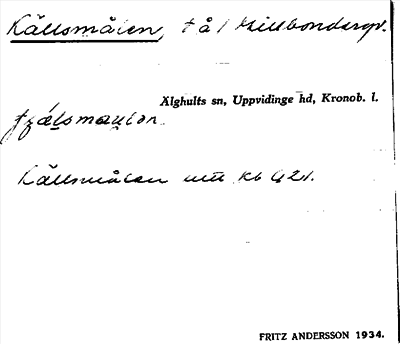 Källsmålen, t å 1 Hillbondarp.
Älghults sn, Uppvidinge hd, Kronob. l.
Källsmålen utt kb G21.
FRITZ ANDERSSON 1934.